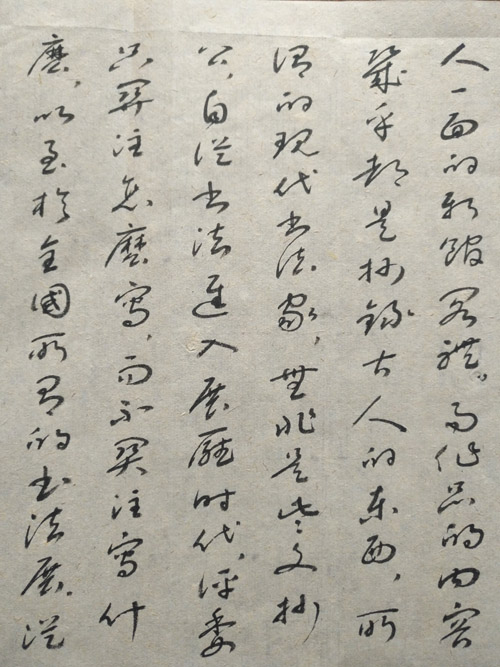 人一面的新館閣體。而作品的内容
幾乎都是抄錄古人的東西，所
謂的現代書法家，無非是些文抄
公。自從書法進入展廳时代，評委
只關注怎麼寫，而不關注寫什
麼，以至於全國所有的書法展，從